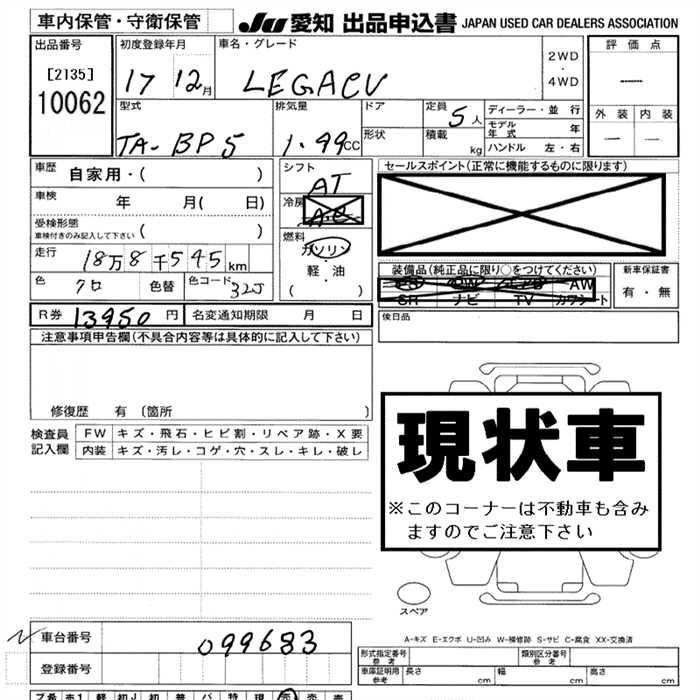 車内保管・守衛保管
JU 愛知 出品申込書 JAPAN USED CAR DEALERS ASSOCIATION
出品番号
[2135]
10062
初度登録年月
17 12月
車名・グレード
LEGACY
2WD
・
4WD
評価点
外装 内装
型式
TA-BP5
排気量
1.99CC
ドア
形状
定員
5人
積載
kg
ディーラー・並行
モデル年式 年
ハンドル 左・右
車歴 自家用・( )
車検 年 月( 日)
受検形態
車検付きのみ記入して下さい ( )
走行 18万8千545km
色 クロ 色替 色コード 32J
シフト
AT
冷房
AC
燃料
ガソリン
軽・油
( )
セールスポイント(正常に機能するものに限ります)
装備品(純正品に限り○をつけてください)
PS PW AW
SR ナビ TV カワシート
新車保証書
有・無
R券 13950円 名変通知期限 月 日
後日品
注意事項申告欄(不具合内容等は具体的に記入して下さい)
修復歴 有 〔箇所 〕
検査員記入欄
FW キズ・飛石・ヒビ割・リペア跡・X要
内装 キズ・汚レ・コゲ・穴・スレ・キレ・破レ
現状車
※このコーナーは不動車も含み
ますのでご注意下さい
スペア
A-キズ E-エクボ U-凹み W-補修跡 S-サビ C-腐食 XX-交換済
車台番号 099683
登録番号
形式指定番号 参考
類別区分番号 参考
車庫証明用 参考 長さ cm 幅 cm 高さ cm